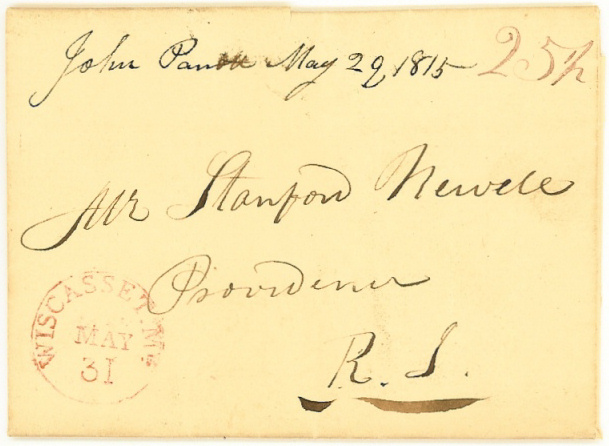 John May 29 1815 25½
Mr Stanford Newell
Providence
R. I.
WISCASSET. Me
MAY
31